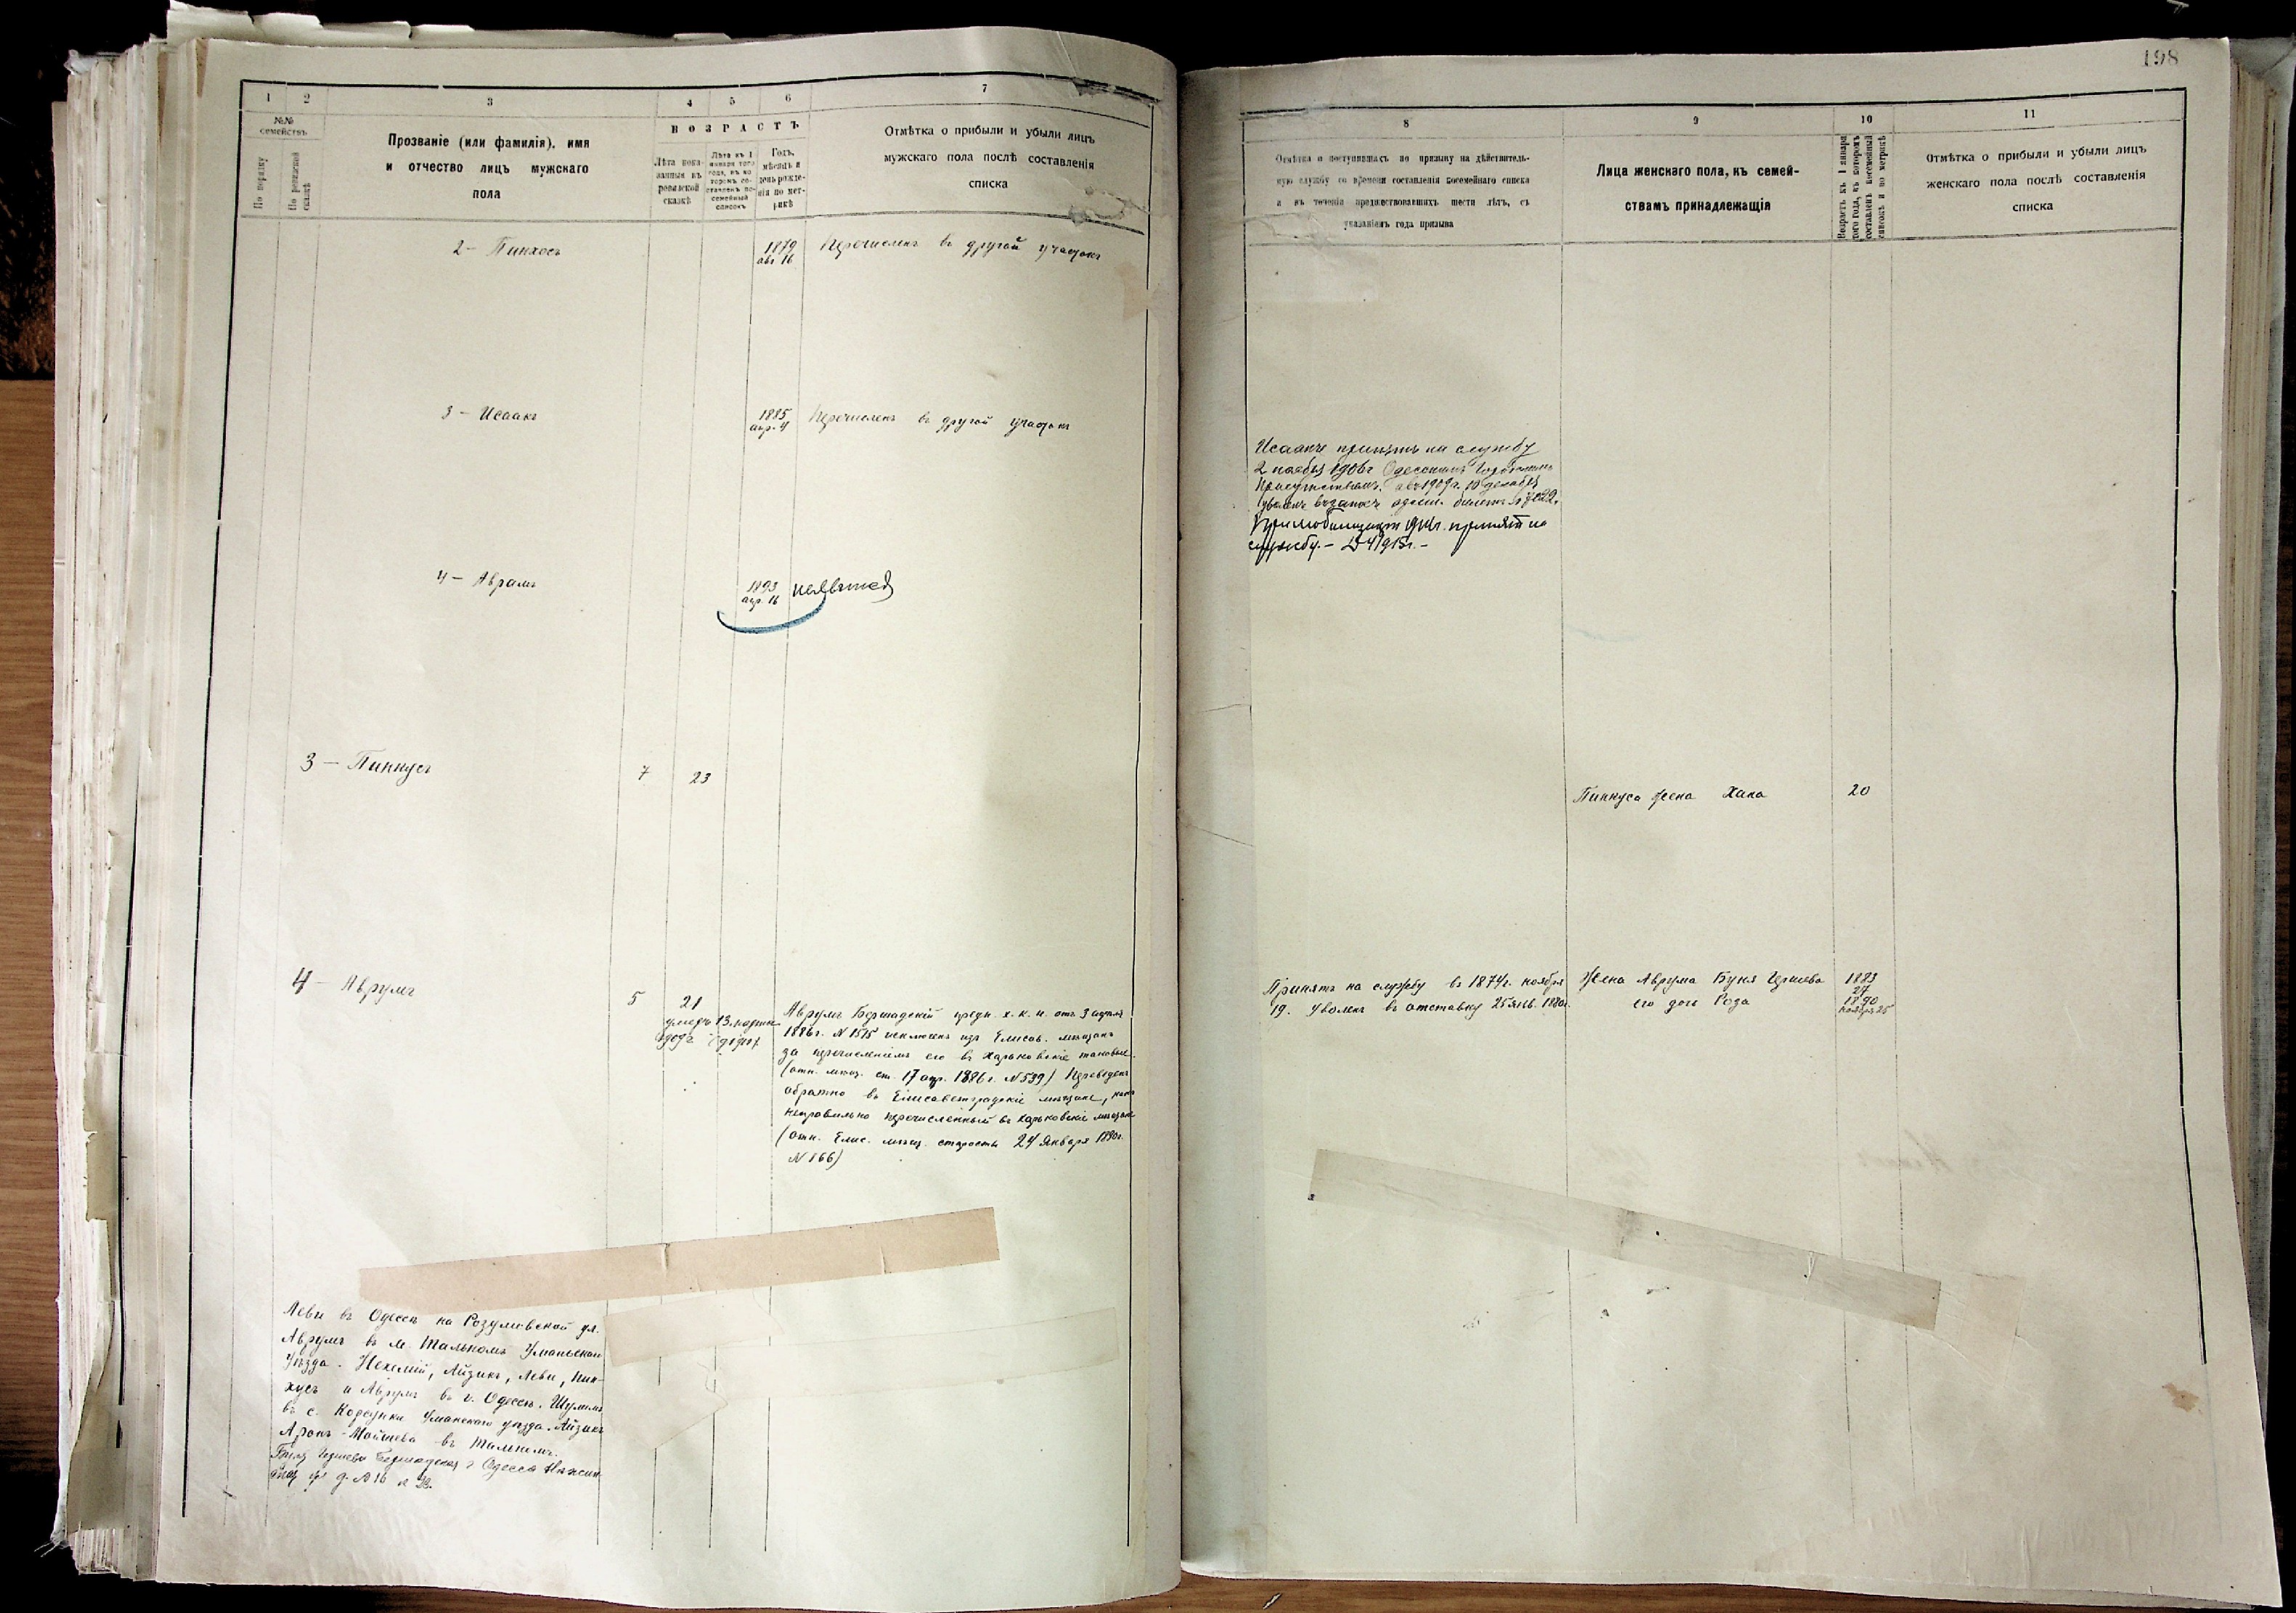 198
1 2 3 4 5 6 7
№№ семействъ
По порядку
По ревизской сказкѣ
Прозваніе (или фамилія), имя
и отчество лицъ мужскаго
пола
ВОЗРАСТЪ
Лѣта пока-
занныя въ
ревизской
сказкѣ
Лѣта къ 1
января того
года, въ ко
торомъ со-
ставленъ по-
семейный
списокъ
Годъ,
мѣсяцъ и
день рожде-
нія по мет-
рикѣ
Отмѣтка о прибыли и убыли лицъ
мужскаго пола послѣ составленія
списка
2 – Пинхосъ 1879 авг. 16 Перечисленъ въ другой участокъ
3 – Исаакъ 1885 апр. 4 Перечисленъ въ другой участокъ
4 – Аврамъ 1893 апр. 16
3 – Пинкусъ 7 23
4 – Аврумъ 5 21
умеръ 13 марта
1909 г.
Аврумъ Бершадскій предп. х. к. п. отъ 3 апрѣля
1886 г. № 1515 исключенъ изъ Елисав. мѣщанъ
за перечисленіемъ его въ Харьковскіе таковые.
(отн. мѣщ. ст. 17 апр. 1886 г. № 539) Переведенъ
обратно въ Елисаветградскіе мѣщане, какъ
неправильно перечисленный въ Харьковскіе мѣщане
(отн. Елис. мѣщ. старосты 24 Января 1890 г.
№ 166)
Леви въ Одессѣ на Розумовской ул.
Аврумъ въ м. Тальномъ Уманьскаго
Уѣзда. Нехемій, Айзикъ, Леви, Пин-
хусъ и Аврумъ въ г. Одессѣ. Шулимъ
въ с. Корсунки Уманскаго уѣзда. Айзикъ
Аронъ-Мойшева въ Тальномъ.
Буня Гершева Бершадская г. Одесса Нѣжин-
ская ул. д. № 16 к 23.
8 9 10 11
Отмѣтка о поступившихъ по призыву на дѣйствитель-
ную службу со времени составленія посемейнаго списка
и въ теченіи предшествовавшихъ шести лѣтъ, съ
указаніемъ года призыва
Лица женскаго пола, къ семей-
ствамъ принадлежащія
Возрастъ къ 1 января
того года, въ которомъ
составленъ посемейный
списокъ и по метрикѣ
Отмѣтка о прибыли и убыли лицъ
женскаго пола послѣ составленія
списка
Исаакъ принятъ на службу
2 ноября 1906 г. Одесскимъ Городскимъ
Присутствіемъ. 1909 г. 10 декабря
уволенъ въ запасъ
При мобилизаціи 1914 г. принят на
службу. –
Пинкуса жена Хана 20
Принятъ на службу въ 1874 г. ноября
19. Уволенъ въ отставку 25 янв. 1880 г.
Жена Аврума Буня Гершева 1883
27
его дочь Роза 1890
ноября 25